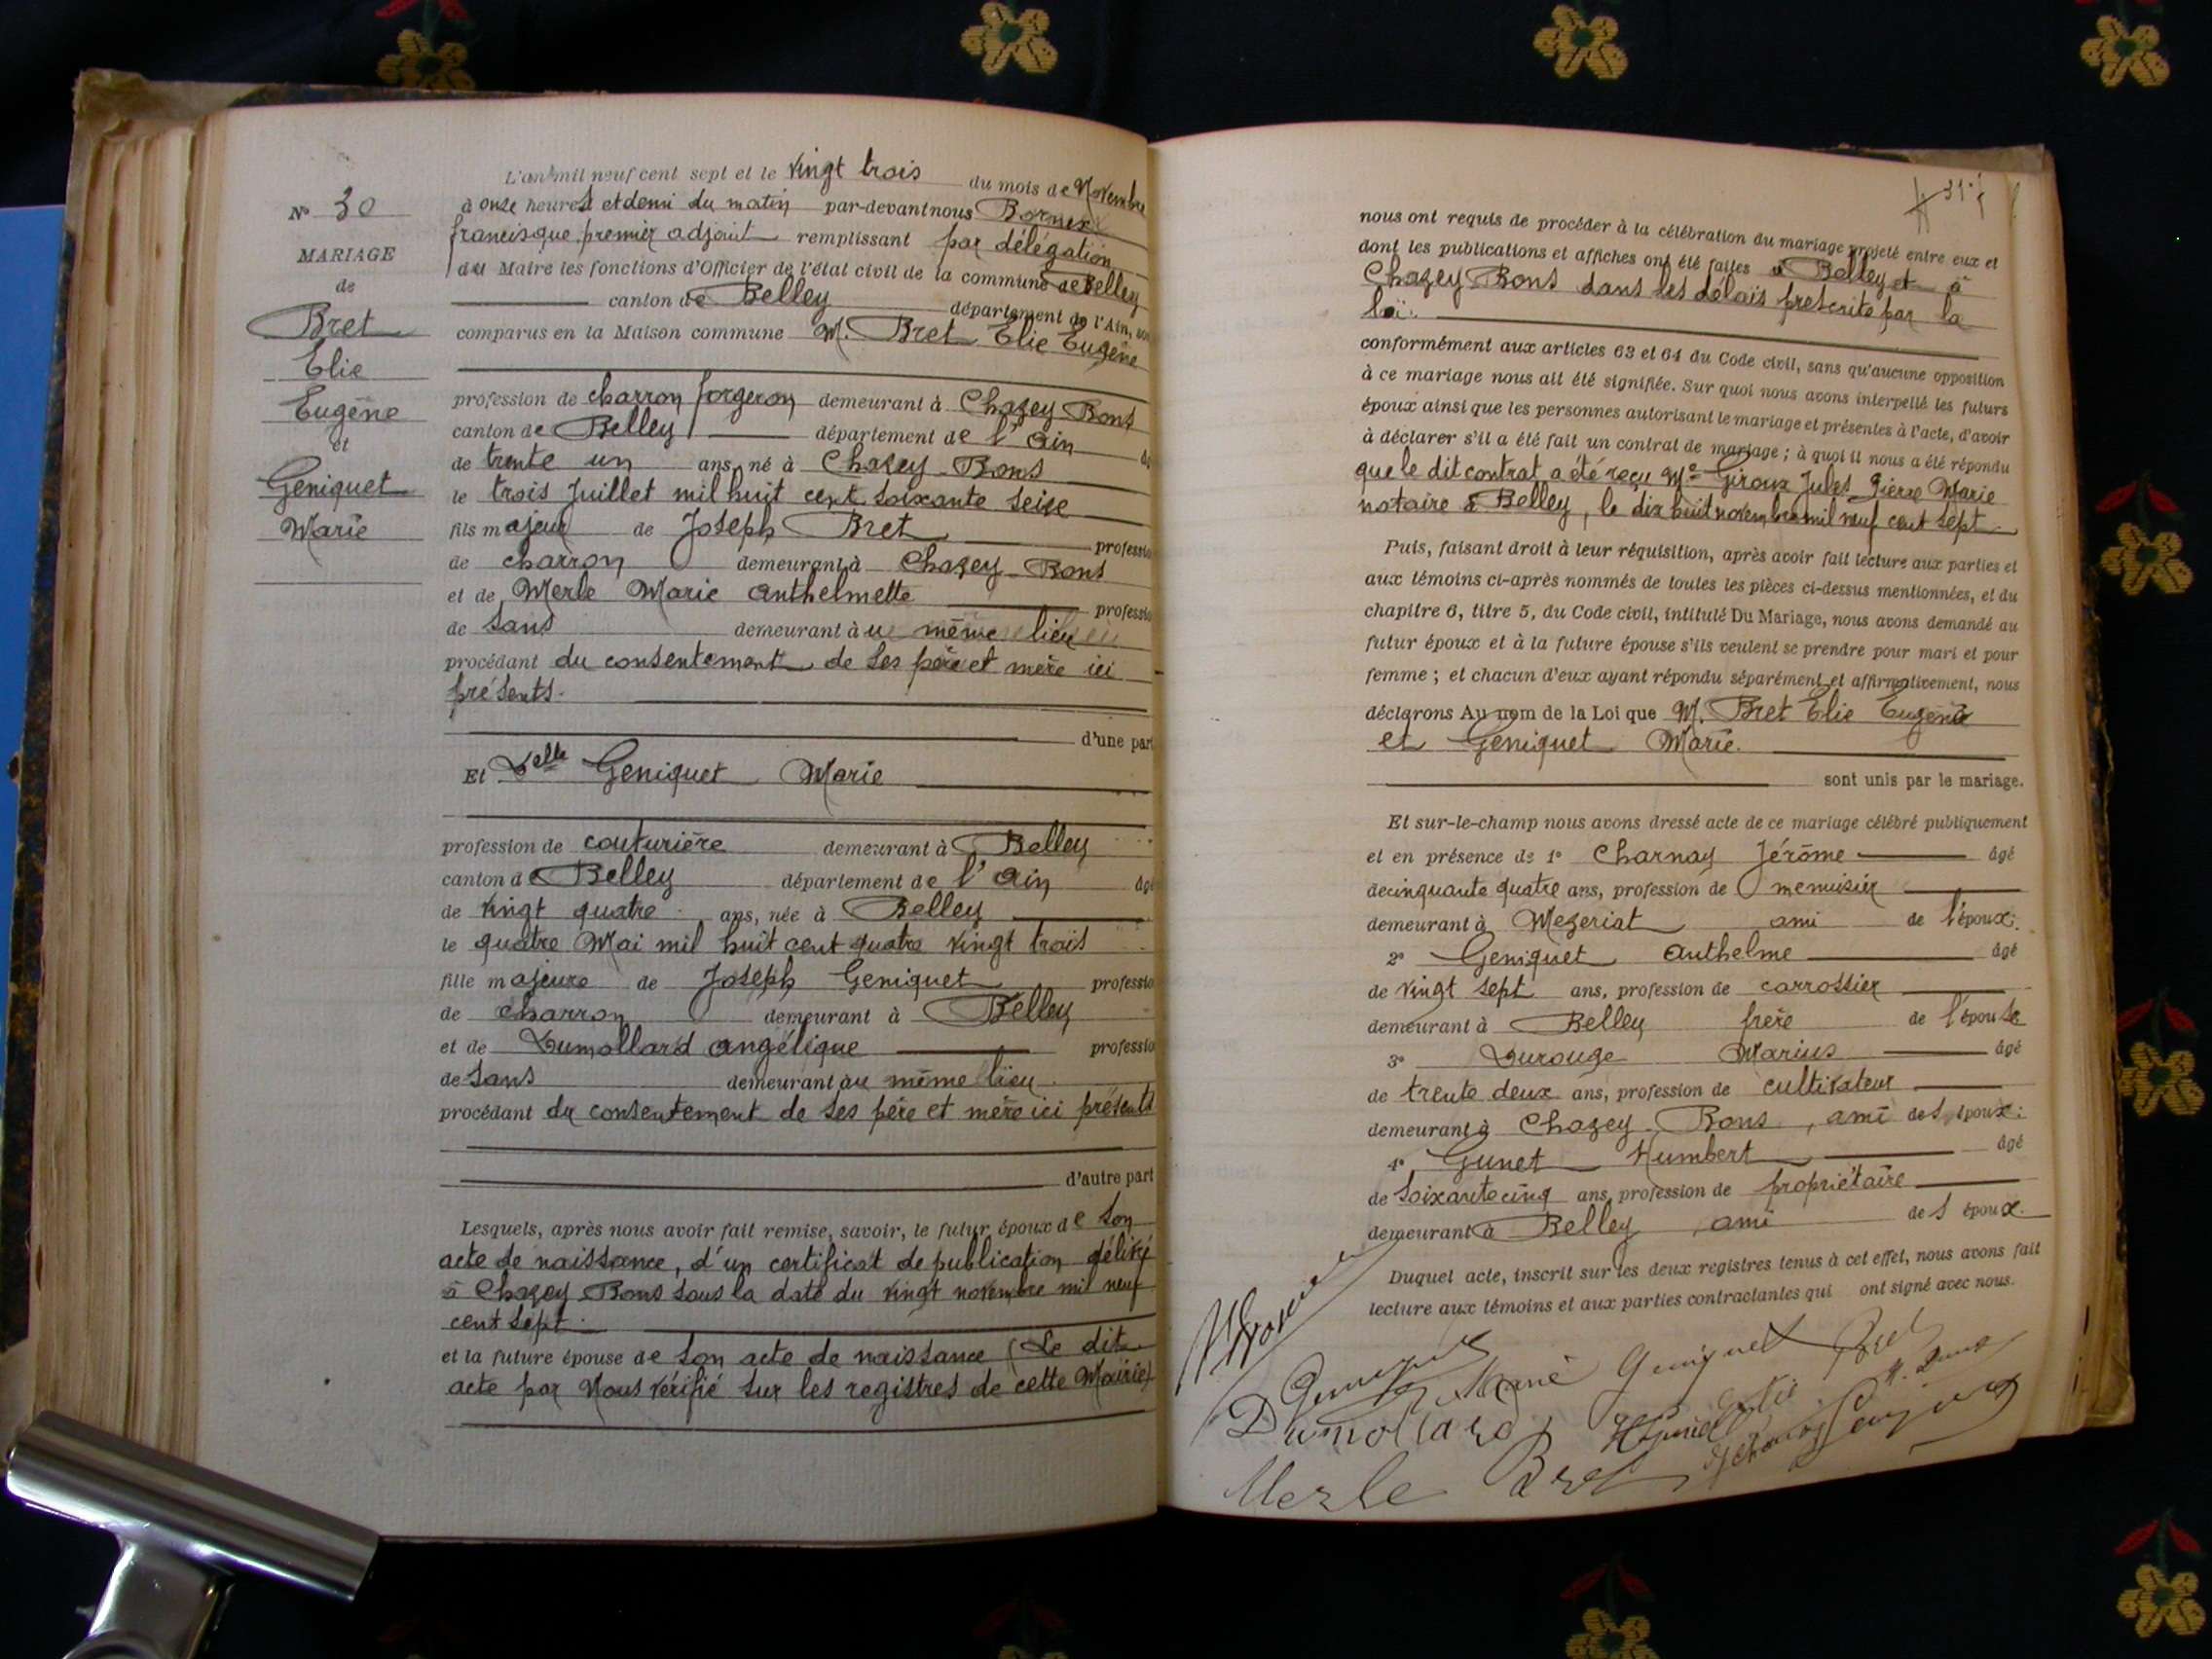 L'an mil neuf cent sept et le vingt trois du mois de Novembre
à onze heures et demi du matin par-devant nous
francisque premier adjoint remplissant par délégation
du Maire les fonctions d'Officier de l'état civil de la commune de Belley
canton de Belley département de l'Ain, sont
comparus en la Maison commune M. Bret Elie Eugène
profession de charron forgeron demeurant à Chazey Bons
canton de Belley département de l'Ain
de trente un ans, né à Chazey-Bons
le trois Juillet mil huit cent soixante seize
fils majeur de Joseph Bret professio
de charron demeurant à Chazey-Bons
et de Merle Marie Anthelmette professio
de sans demeurant au même lieu
procédant du consentement de ses père et mère ici
présents.
d'une part
Et Delle Geniquet Marie
profession de couturière demeurant à Belley
canton de Belley département de l'Ain âgé
de vingt quatre ans, née à Belley
le quatre Mai mil huit cent quatre vingt trois
fille majeure de Joseph Geniquet professio
de charron demeurant à Belley
et de Dumollard Angélique professio
de sans demeurant au même lieu
procédant du consentement de ses père et mère ici présents
d'autre part
Lesquels, après nous avoir fait remise, savoir, le futur époux de son
acte de naissance, d'un certificat de publication délivré
à Chazey Bons sous la date du vingt novembre mil neuf
cent sept.
et la future épouse de son acte de naissance (Le dit
acte par Nous vérifié sur les registres de cette Mairie)
N° 30
MARIAGE
de
Bret
Elie
Eugène
et
Geniquet
Marie
31
nous ont requis de procéder à la célébration du mariage projeté entre eux et
dont les publications et affiches ont été faites à Belley et à
Chazey Bons dans les délais prescrits par la
loi.
conformément aux articles 63 et 64 du Code civil, sans qu'aucune opposition
à ce mariage nous ait été signifiée. Sur quoi nous avons interpellé les futurs
époux ainsi que les personnes autorisant le mariage et présentes à l'acte, d'avoir
à déclarer s'il a été fait un contrat de mariage ; à quoi il nous a été répondu
que le dit contrat a été reçu Me Giroux Jules Pierre Marie
notaire à Belley, le dix huit novembre mil neuf cent sept.
Puis, faisant droit à leur réquisition, après avoir fait lecture aux parties et
aux témoins ci-après nommés de toutes les pièces ci-dessus mentionnées, et du
chapitre 6, titre 5, du Code civil, intitulé Du Mariage, nous avons demandé au
futur époux et à la future épouse s'ils veulent se prendre pour mari et pour
femme ; et chacun d'eux ayant répondu séparément et affirmativement, nous
déclarons Au nom de la Loi que M. Bret Elie Eugène
et Geniquet Marie.
sont unis par le mariage.
Et sur-le-champ nous avons dressé acte de ce mariage célébré publiquement
et en présence de 1° Charnay Jérôme âgé
de cinquante quatre ans, profession de menuisier
demeurant à Mezeriat ami de l'époux.
2° Geniquet Anthelme âgé
de vingt sept ans, profession de carrossier
demeurant à Belley frère de l'épouse
3° Durouge Marius âgé
de trente deux ans, profession de cultivateur
demeurant à Chazey-Bons, ami des époux.
4° Gunet Humbert âgé
de soixante cinq ans, profession de propriétaire
demeurant à Belley ami des époux.
Duquel acte, inscrit sur les deux registres tenus à cet effet, nous avons fait
lecture aux témoins et aux parties contractantes qui ont signé avec nous.
Marie Geniquet Bret
Dumollard
Merle Bret